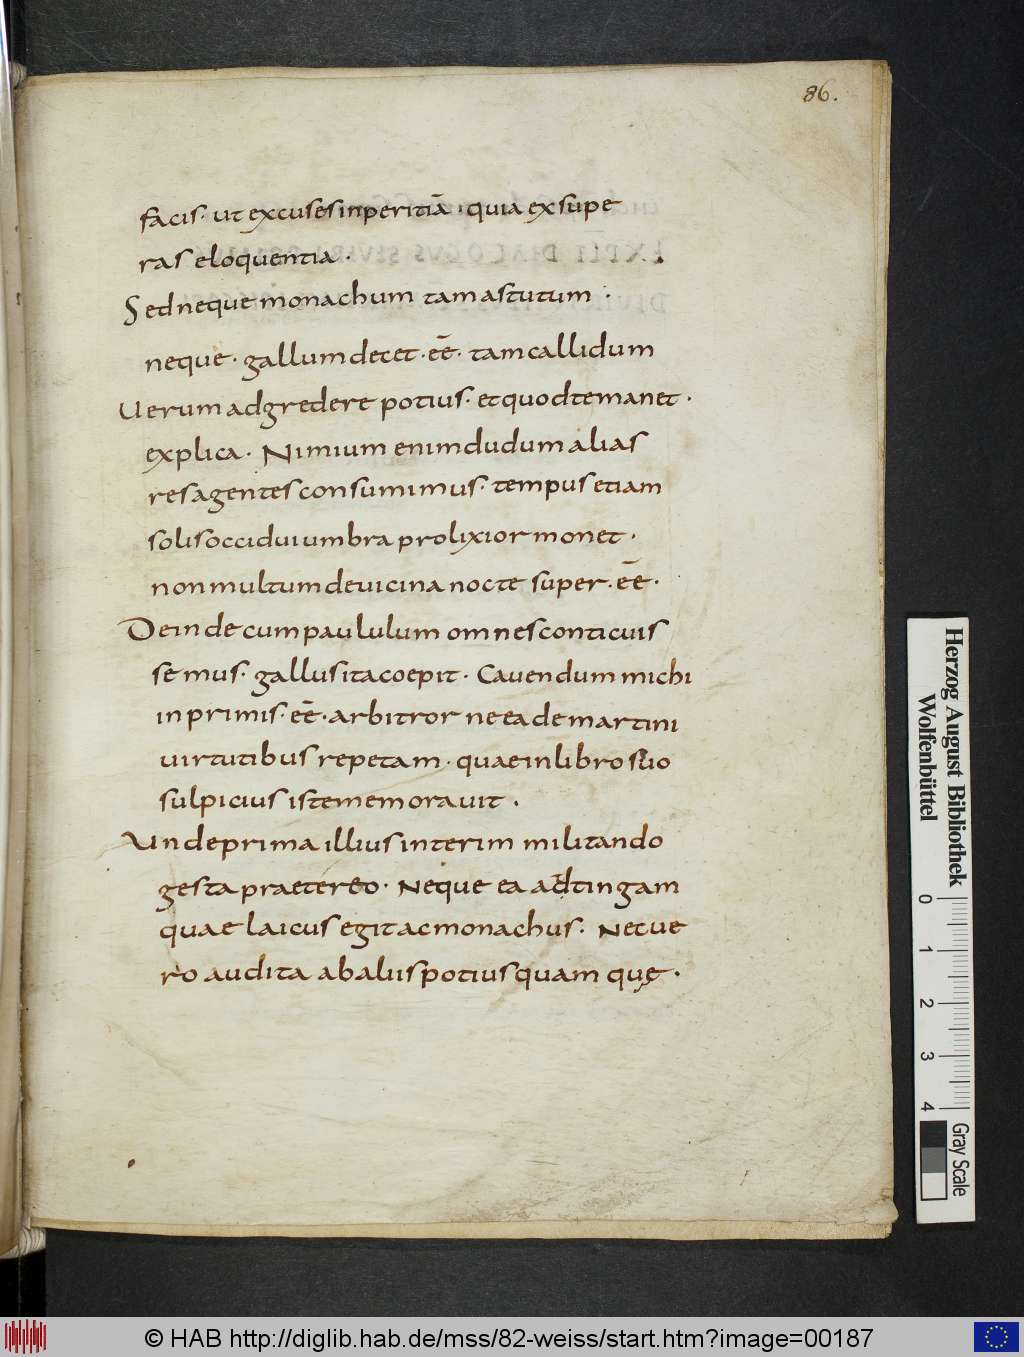 86.
facis· ut excuses inperitiā · quia exsupe
ras eloquentia ·
Sed neque monachum tam astutum ·
neque · gallum decet · eē · tam callidum
Uerum adgredere potius · et quod te manet ·
explica · Nimium enim dudum alias
res agentes consumimus · tempus etiam
solis occidui umbra prolixior monet ·
non multum de uicina nocte super · eē ·
Deinde cum paululum omnes conticuis
semus · gallus ita coepit · Cauendum michi
in primis · eē · arbitror ne ea de martini
uirtutibus repetam · quae in libro suo
sulpicius iste memorauit ·
Unde prima illius interim militando
gesta praetereo · Neque ea adtingam
quae laicus egit ac monachus · Nec ue
ro audita ab aliis potius quam quę ·
Herzog August Bibliothek
Wolfenbüttel
0 1 2 3 4
Gray Scale
© HAB http://diglib.hab.de/mss/82-weiss/start.htm?image=00187